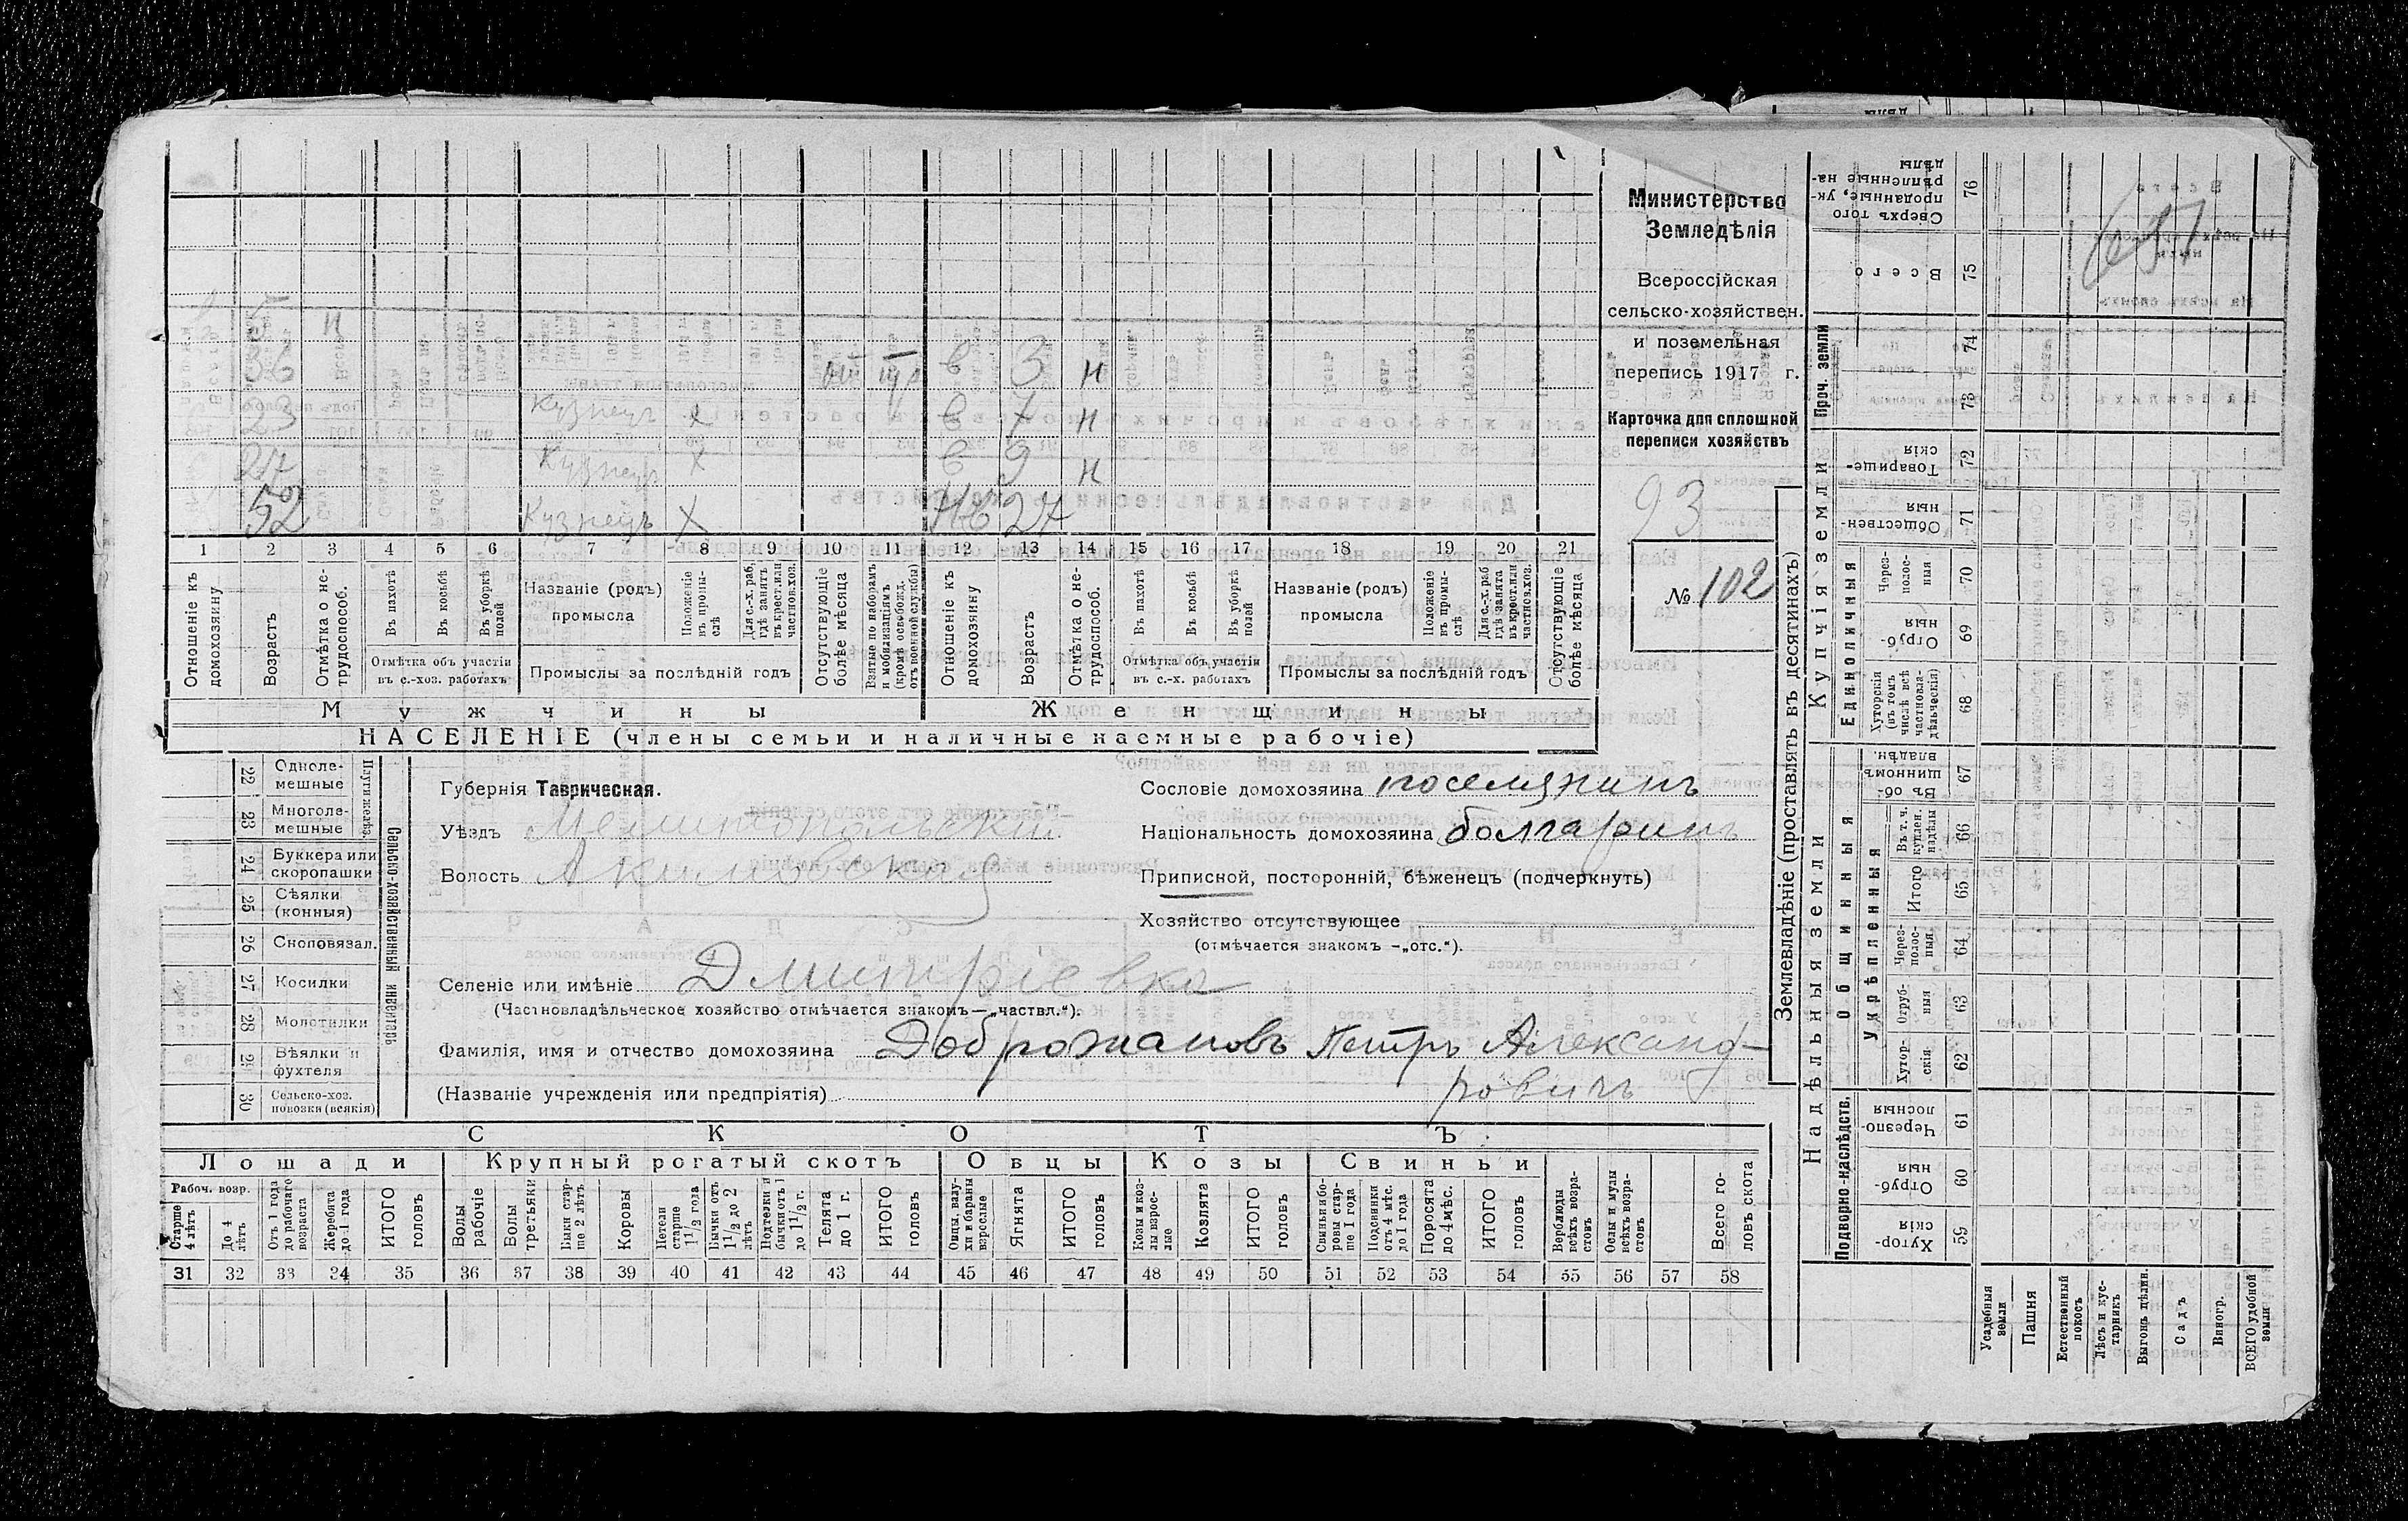 Министерство
Земледѣлія
Всероссійская
сельско-хозяйствен.
и поземельная
перепись 1917 г.
Карточка для сплошной
переписи хозяйствъ
93
№ 102
н
36 в 3 н
23 Кузнецъ х в 7 н
27 Кузнецъ х в 9 н
52 Кузнецъ х 27
1 2 3 4 5 6 7 8 9 10 11 12 13 14 15 16 17 18 19 20 21
Отношеніе къ домохозяину
Возрастъ
Отмѣтка о не-трудоспособ.
Въ пахотѣ
Въ косьбѣ
Въ уборкѣ полей
Отмѣтка объ участіи въ с.-хоз. работахъ
Названіе (родъ) промысла
Положеніе въ промы-слѣ
Для с.-х. раб. гдѣ занятъ въ крест. или частнов. хоз.
Промыслы за послѣдній годъ
Отсутствующіе болѣе мѣсяца
Взятые по наборамъ и мобилизаціямъ (кромѣ освобожд. отъ военной службы)
Отношеніе къ домохозяину
Возрастъ
Отмѣтка о не-трудоспособ.
Въ пахотѣ
Въ косьбѣ
Въ уборкѣ полей
Отмѣтка объ участіи въ с.-х. работахъ
Названіе (родъ) промысла
Положеніе въ промы-слѣ
Для с.-х. раб гдѣ занята въ крест. или частнов. хоз.
Промыслы за послѣдній годъ
Отсутствующіе болѣе мѣсяца
Мужчины Женщины
НАСЕЛЕНІЕ (члены семьи и наличные наемные рабочіе)
22 Одноле-мешные
23 Многоле-мешные
Плуги желѣз.
24 Буккера или скоропашки
25 Сѣялки (конныя)
26 Сноповязал.
27 Косилки
28 Молотилки
29 Вѣялки и фухтеля
30 Сельско-хоз. повозки (всякія)
Сельско-хозяйственный инвентарь
Губернія Таврическая.
Уѣздъ Мелитопольскій
Волость Акимовская
Селеніе или имѣніе Дмитріевка
(Частновладѣльческое хозяйство отмѣчается знакомъ—„частвл.“).
Фамилія, имя и отчество домохозяина Доброжановъ Петръ Александ-
(Названіе учрежденія или предпріятія) ровичъ
Сословіе домохозяина поселянинъ
Національность домохозяина болгаринъ
Приписной, посторонній, бѣженецъ (подчеркнуть)
Хозяйство отсутствующее
(отмѣчается знакомъ -„отс.“).
СКОТЪ
Лошади Крупный рогатый скотъ Овцы Козы Свиньи
Рабоч. возр.
Старше 4 лѣтъ
До 4 лѣтъ
Отъ 1 года до рабочаго возраста
Жеребята до 1 года
ИТОГО головъ
Волы рабочіе
Волы третьяки
Быки стар-ше 2 лѣтъ
Коровы
Нетели старше 1 1/2 года
Бычки отъ 1 1/2 до 2 лѣтъ
Подтелки и бычки отъ 1 до 1 1/2 г.
Телята до 1 г.
ИТОГО головъ
Овцы, валу-хи и бараны взрослые
Ягнята
ИТОГО головъ
Козы и коз-лы взрос-лые
Козлята
ИТОГО головъ
Свиньи и бо-ровы стар-ше 1 года
Подсвинки отъ 4 мѣс. до 1 года
Поросята до 4 мѣс.
ИТОГО головъ
Верблюды всѣхъ возра-стовъ
Ослы и мулы всѣхъ возра-стовъ
Всего го-ловъ скота
31 32 33 34 35 36 37 38 39 40 41 42 43 44 45 46 47 48 49 50 51 52 53 54 55 56 57 58
Землевладѣніе (проставлять въ десятинахъ)
Надѣльныя земли
Купчія земли
Проч. земли
Подворно-наслѣдств.
Общинныя
Укрѣпленныя
Единоличныя
59 Хутор-скія
60 Отруб-ныя
61 Черезпо-лосныя
62 Хутор-скія
63 Отруб-ныя
64 Через-полос-ныя
65 Итого
66 Въ т. ч. куплен. надѣлы
67 Въ об-щинномъ владѣн.
68 Хуторскія (въ томъ числѣ всѣ частновла-дѣльческія)
69 Отруб-ныя
70 Через-полос-ныя
71 Обществен-ныя
72 Товарище-скія
73
74
75 Всего
76 Сверхъ того проданные, ук-рѣпленные на-дѣлы
Усадебныя земли
Пашня
Естественный покосъ
Лѣсъ и кус-тарникъ
Выгонъ цѣлин.
Садъ
Виногр.
ВСЕГО удобной земли